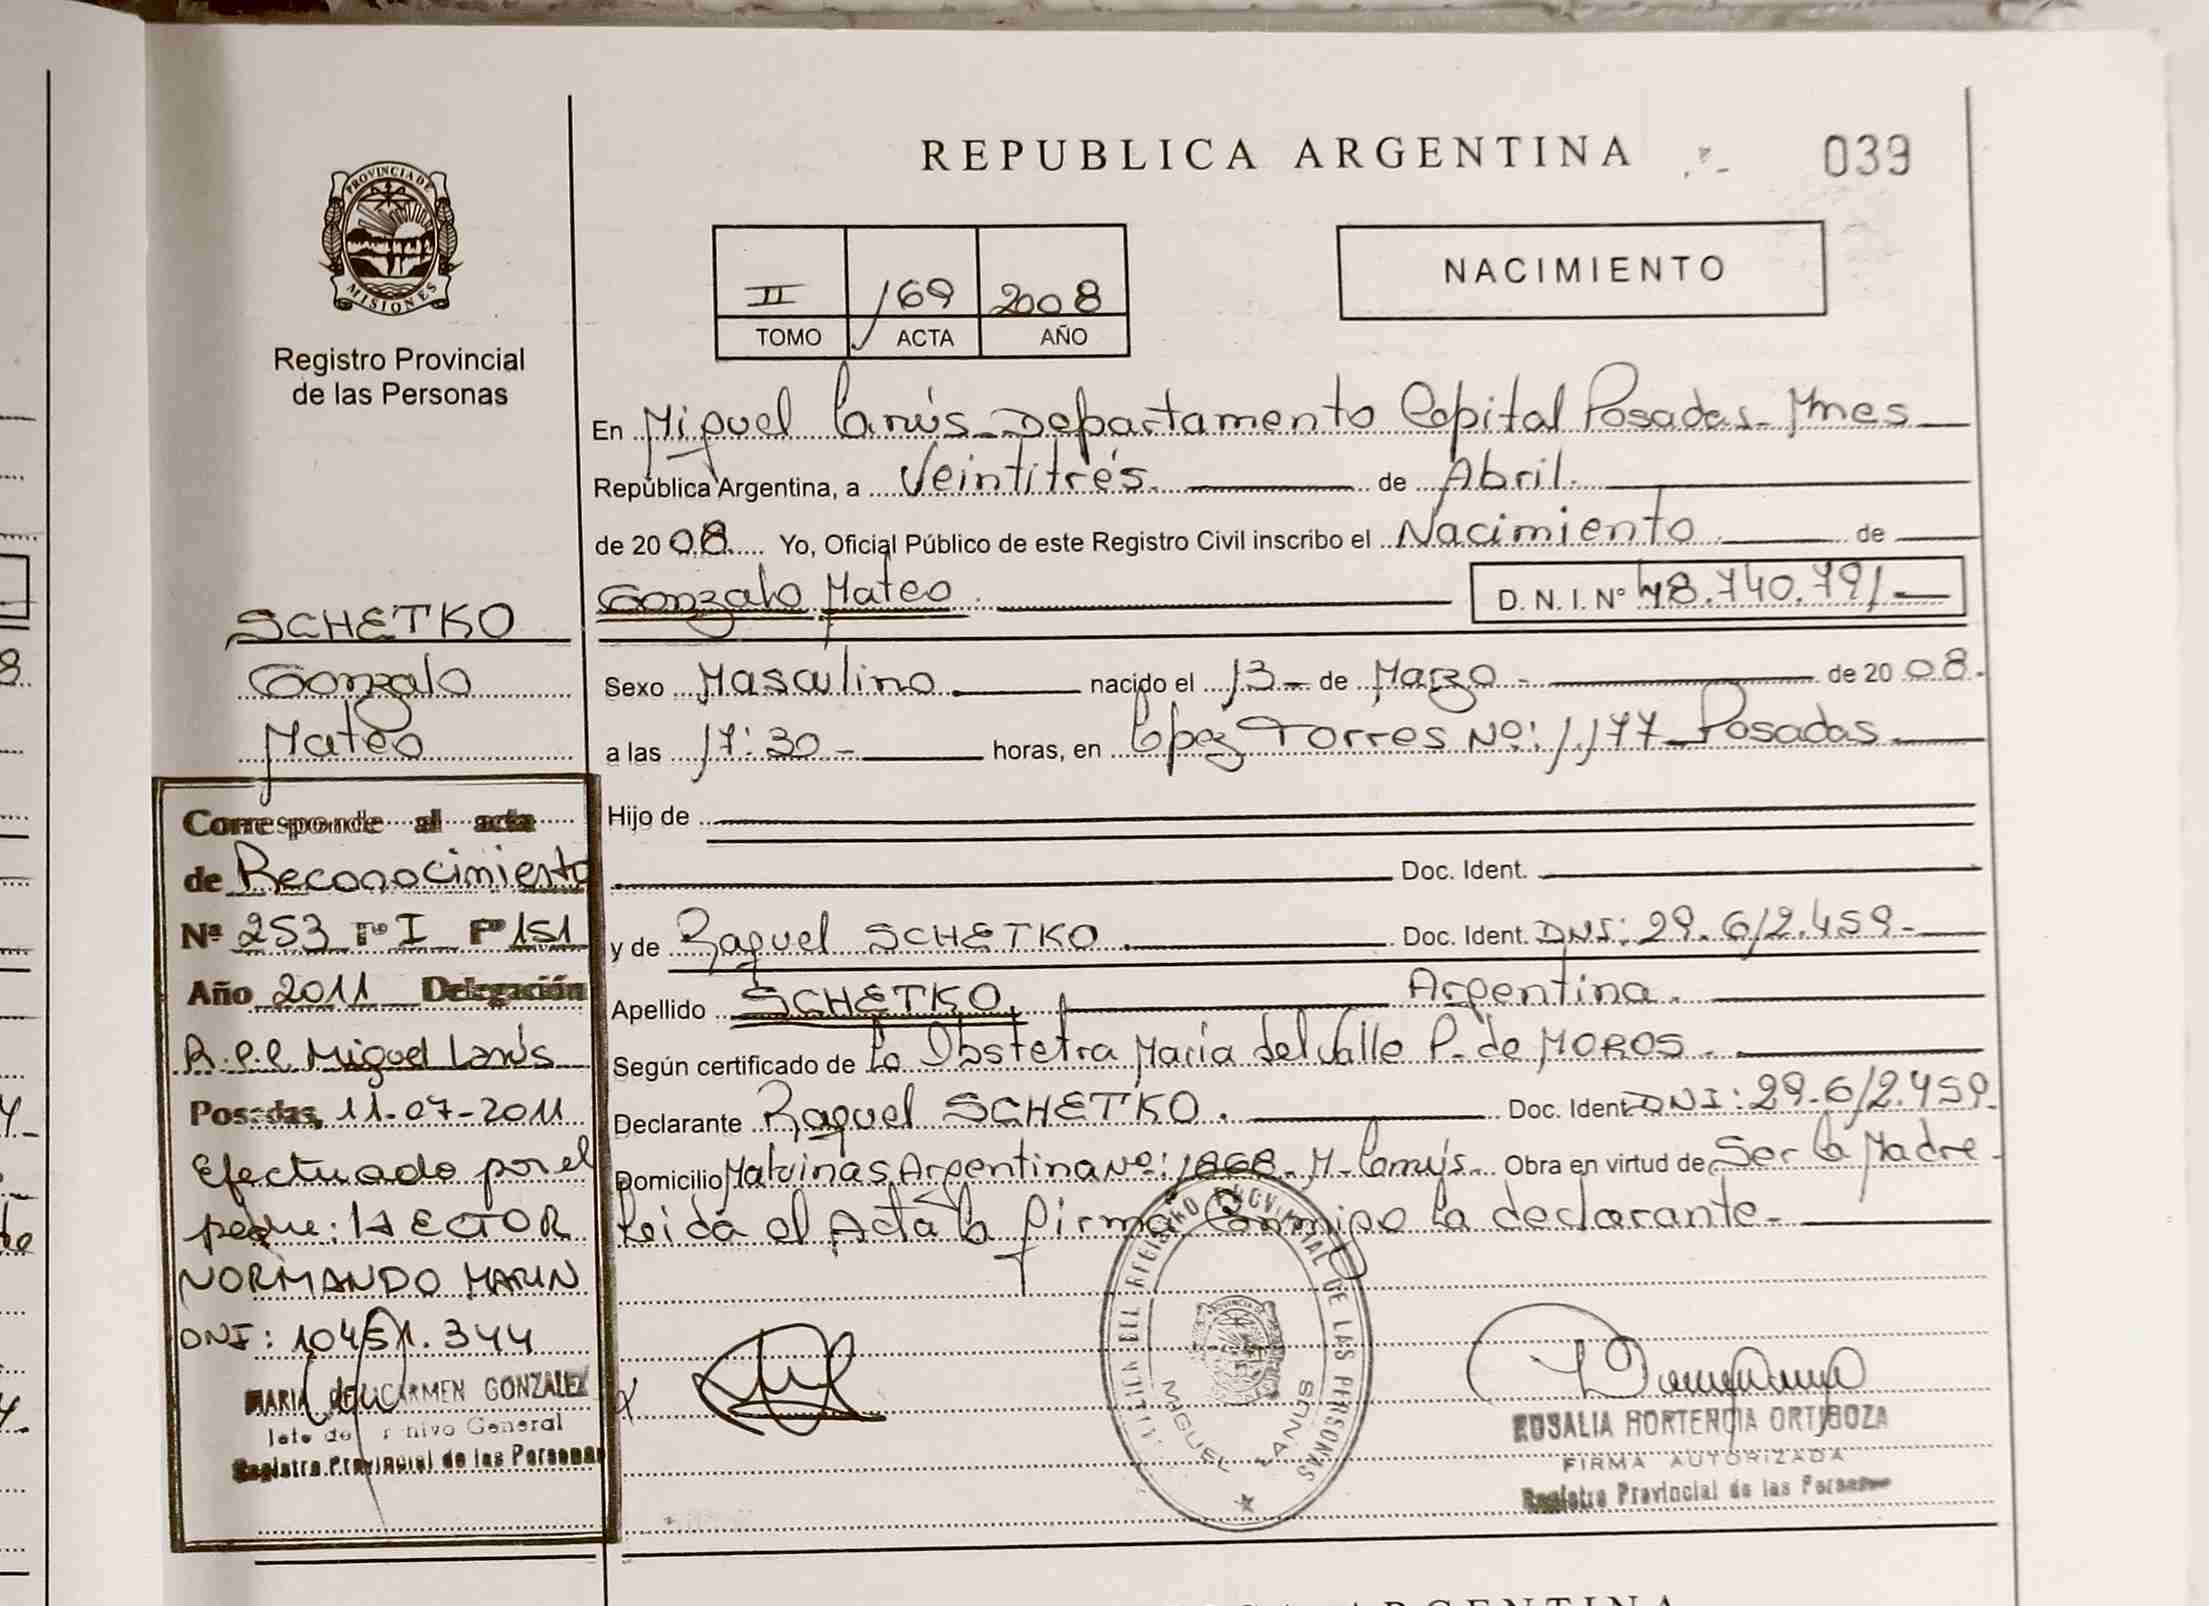 REPUBLICA ARGENTINA
039
PROVINCIA DE
MISIONES
Registro Provincial
de las Personas
II 169 2008
TOMO ACTA AÑO
NACIMIENTO
En Miguel Lanús - Departamento Capital Posadas - Mnes
República Argentina, a Veintitrés. de Abril.
de 2008. Yo, Oficial Público de este Registro Civil inscribo el Nacimiento de
Gonzalo Mateo. D. N. I. Nº 48.740.791
Sexo Masculino nacido el 13 - de Marzo - de 2008.
a las 17:30 - horas, en López Torres Nº: 1.177 - Posadas
Hijo de
Doc. Ident.
y de Raquel SCHETKO. Doc. Ident. DNI: 29.612.459.-
Apellido SCHETKO. Argentina.
Según certificado de La Obstetra María del Valle P. de MOROS.
Declarante Raquel SCHETKO. Doc. Ident. DNI: 29.612.459.
Domicilio Malvinas Argentina Nº: 1868 - M. Lanús. Obra en virtud de Ser la Madre -
Leida el Acta la firma Conmigo la declarante -
SCHETKO
Gonzalo
Mateo
Corresponde al acta
de Reconocimiento
Nº 253 Tº I Fº 151
Año 2011 Delegación
R.P.P. Miguel Lanús
Posadas, 11-07-2011
Efectuado por el
padre: HECTOR
NORMANDO MARIN
DNI: 10451.344
MARIA DEL CARMEN GONZALEZ
Jefe de Archivo General
Registro Provincial de las Personas
DEL REGISTRO PROVINCIAL DE LAS PERSONAS
MIGUEL LANUS
PROVINCIA DE
x
ROSALIA HORTENCIA ORTIBOZA
FIRMA AUTORIZADA
Registro Provincial de las Personas